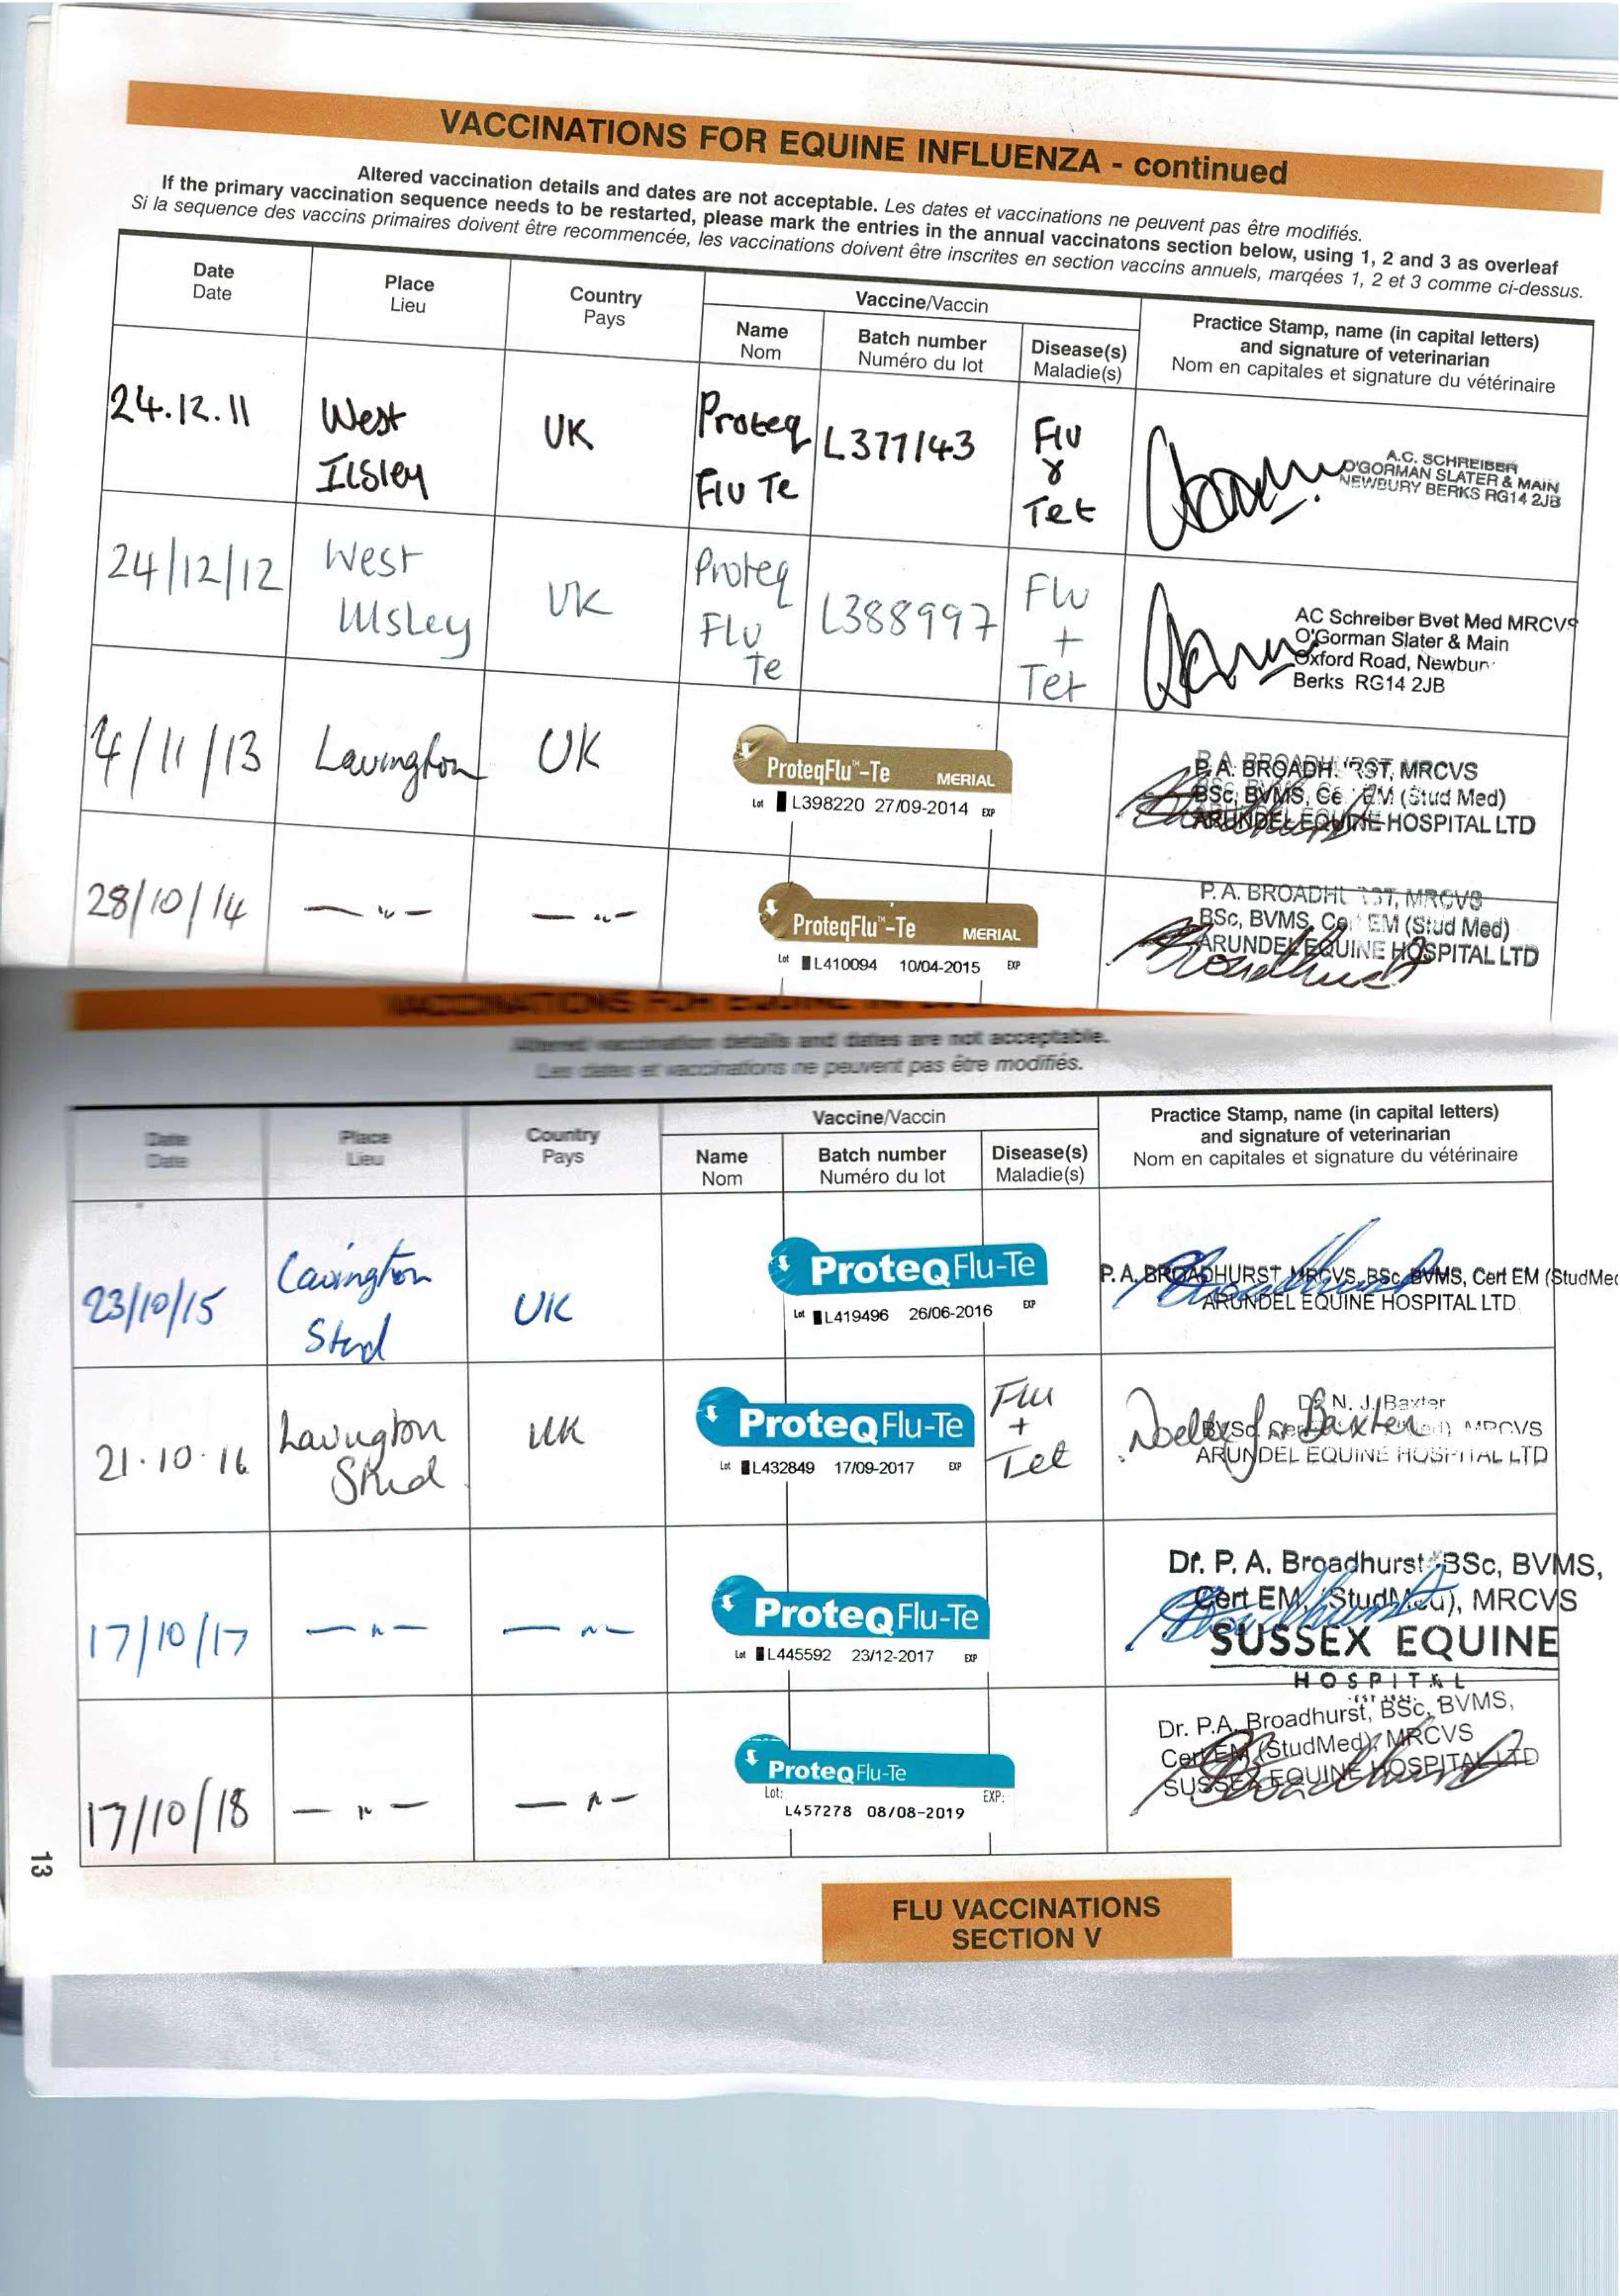 VACCINATIONS FOR EQUINE INFLUENZA - continued
Altered vaccination details and dates are not acceptable. Les dates et vaccinations ne peuvent pas être modifiés.
If the primary vaccination sequence needs to be restarted, please mark the entries in the annual vaccinatons section below, using 1, 2 and 3 as overleaf
Si la sequence des vaccins primaires doivent être recommencée, les vaccinations doivent être inscrites en section vaccins annuels, marqées 1, 2 et 3 comme ci-dessus.
Date
Date
Place
Lieu
Country
Pays
Vaccine/Vaccin
Name
Nom
Batch number
Numéro du lot
Disease(s)
Maladie(s)
Practice Stamp, name (in capital letters)
and signature of veterinarian
Nom en capitales et signature du vétérinaire
24.12.11
West
Ilsley
UK
Proteq
Flu Te
L377143
Flu
&
Tet
A.C. SCHREIBER
O'GORMAN SLATER & MAIN
NEWBURY BERKS RG14 2JB
24/12/12
West
Illsley
UK
Proteq
Flu
Te
L388997
Flu
+
Tet
AC Schreiber Bvet Med MRCVS
O'Gorman Slater & Main
Oxford Road, Newbury
Berks RG14 2JB
4/11/13
Lavington
UK
ProteqFlu™-Te MERIAL
Lot L398220 27/09-2014 EXP
P.A. BROADHURST, MRCVS
BSc, BVMS, Cert EM (Stud Med)
ARUNDEL EQUINE HOSPITAL LTD
28/10/14
— " —
— " —
ProteqFlu™-Te MERIAL
Lot L410094 10/04-2015 EXP
P.A. BROADHURST, MRCVS
BSc, BVMS, Cert EM (Stud Med)
ARUNDEL EQUINE HOSPITAL LTD
Broadhurst
VACCINATIONS FOR EQUINE
Altered vaccination details and dates are not acceptable.
Les dates et vaccinations ne peuvent pas être modifiés.
Date
Date
Place
Lieu
Country
Pays
Vaccine/Vaccin
Name
Nom
Batch number
Numéro du lot
Disease(s)
Maladie(s)
Practice Stamp, name (in capital letters)
and signature of veterinarian
Nom en capitales et signature du vétérinaire
23/10/15
Lavington
Stud
UK
ProteqFlu-Te
Lot L419496 26/06-2016 EXP
P.A. BROADHURST MRCVS, BSc, BVMS, Cert EM (StudMed
ARUNDEL EQUINE HOSPITAL LTD
21.10.16
Lavington
Stud
UK
ProteqFlu-Te
Lot L432849 17/09-2017 EXP
Flu
+
Tet
Dr N. J. Baxter
MRCVS
ARUNDEL EQUINE HOSPITAL LTD
17/10/17
— " —
— " —
ProteqFlu-Te
Lot L445592 23/12-2017 EXP
Dr. P. A. Broadhurst BSc, BVMS,
Cert EM, (StudMed), MRCVS
SUSSEX EQUINE
HOSPITAL
17/10/18
— " —
— " —
ProteqFlu-Te
Lot: EXP:
L457278 08/08-2019
Dr. P.A. Broadhurst, BSc, BVMS,
Cert EM (StudMed), MRCVS
SUSSEX EQUINE HOSPITAL LTD
13
FLU VACCINATIONS
SECTION V